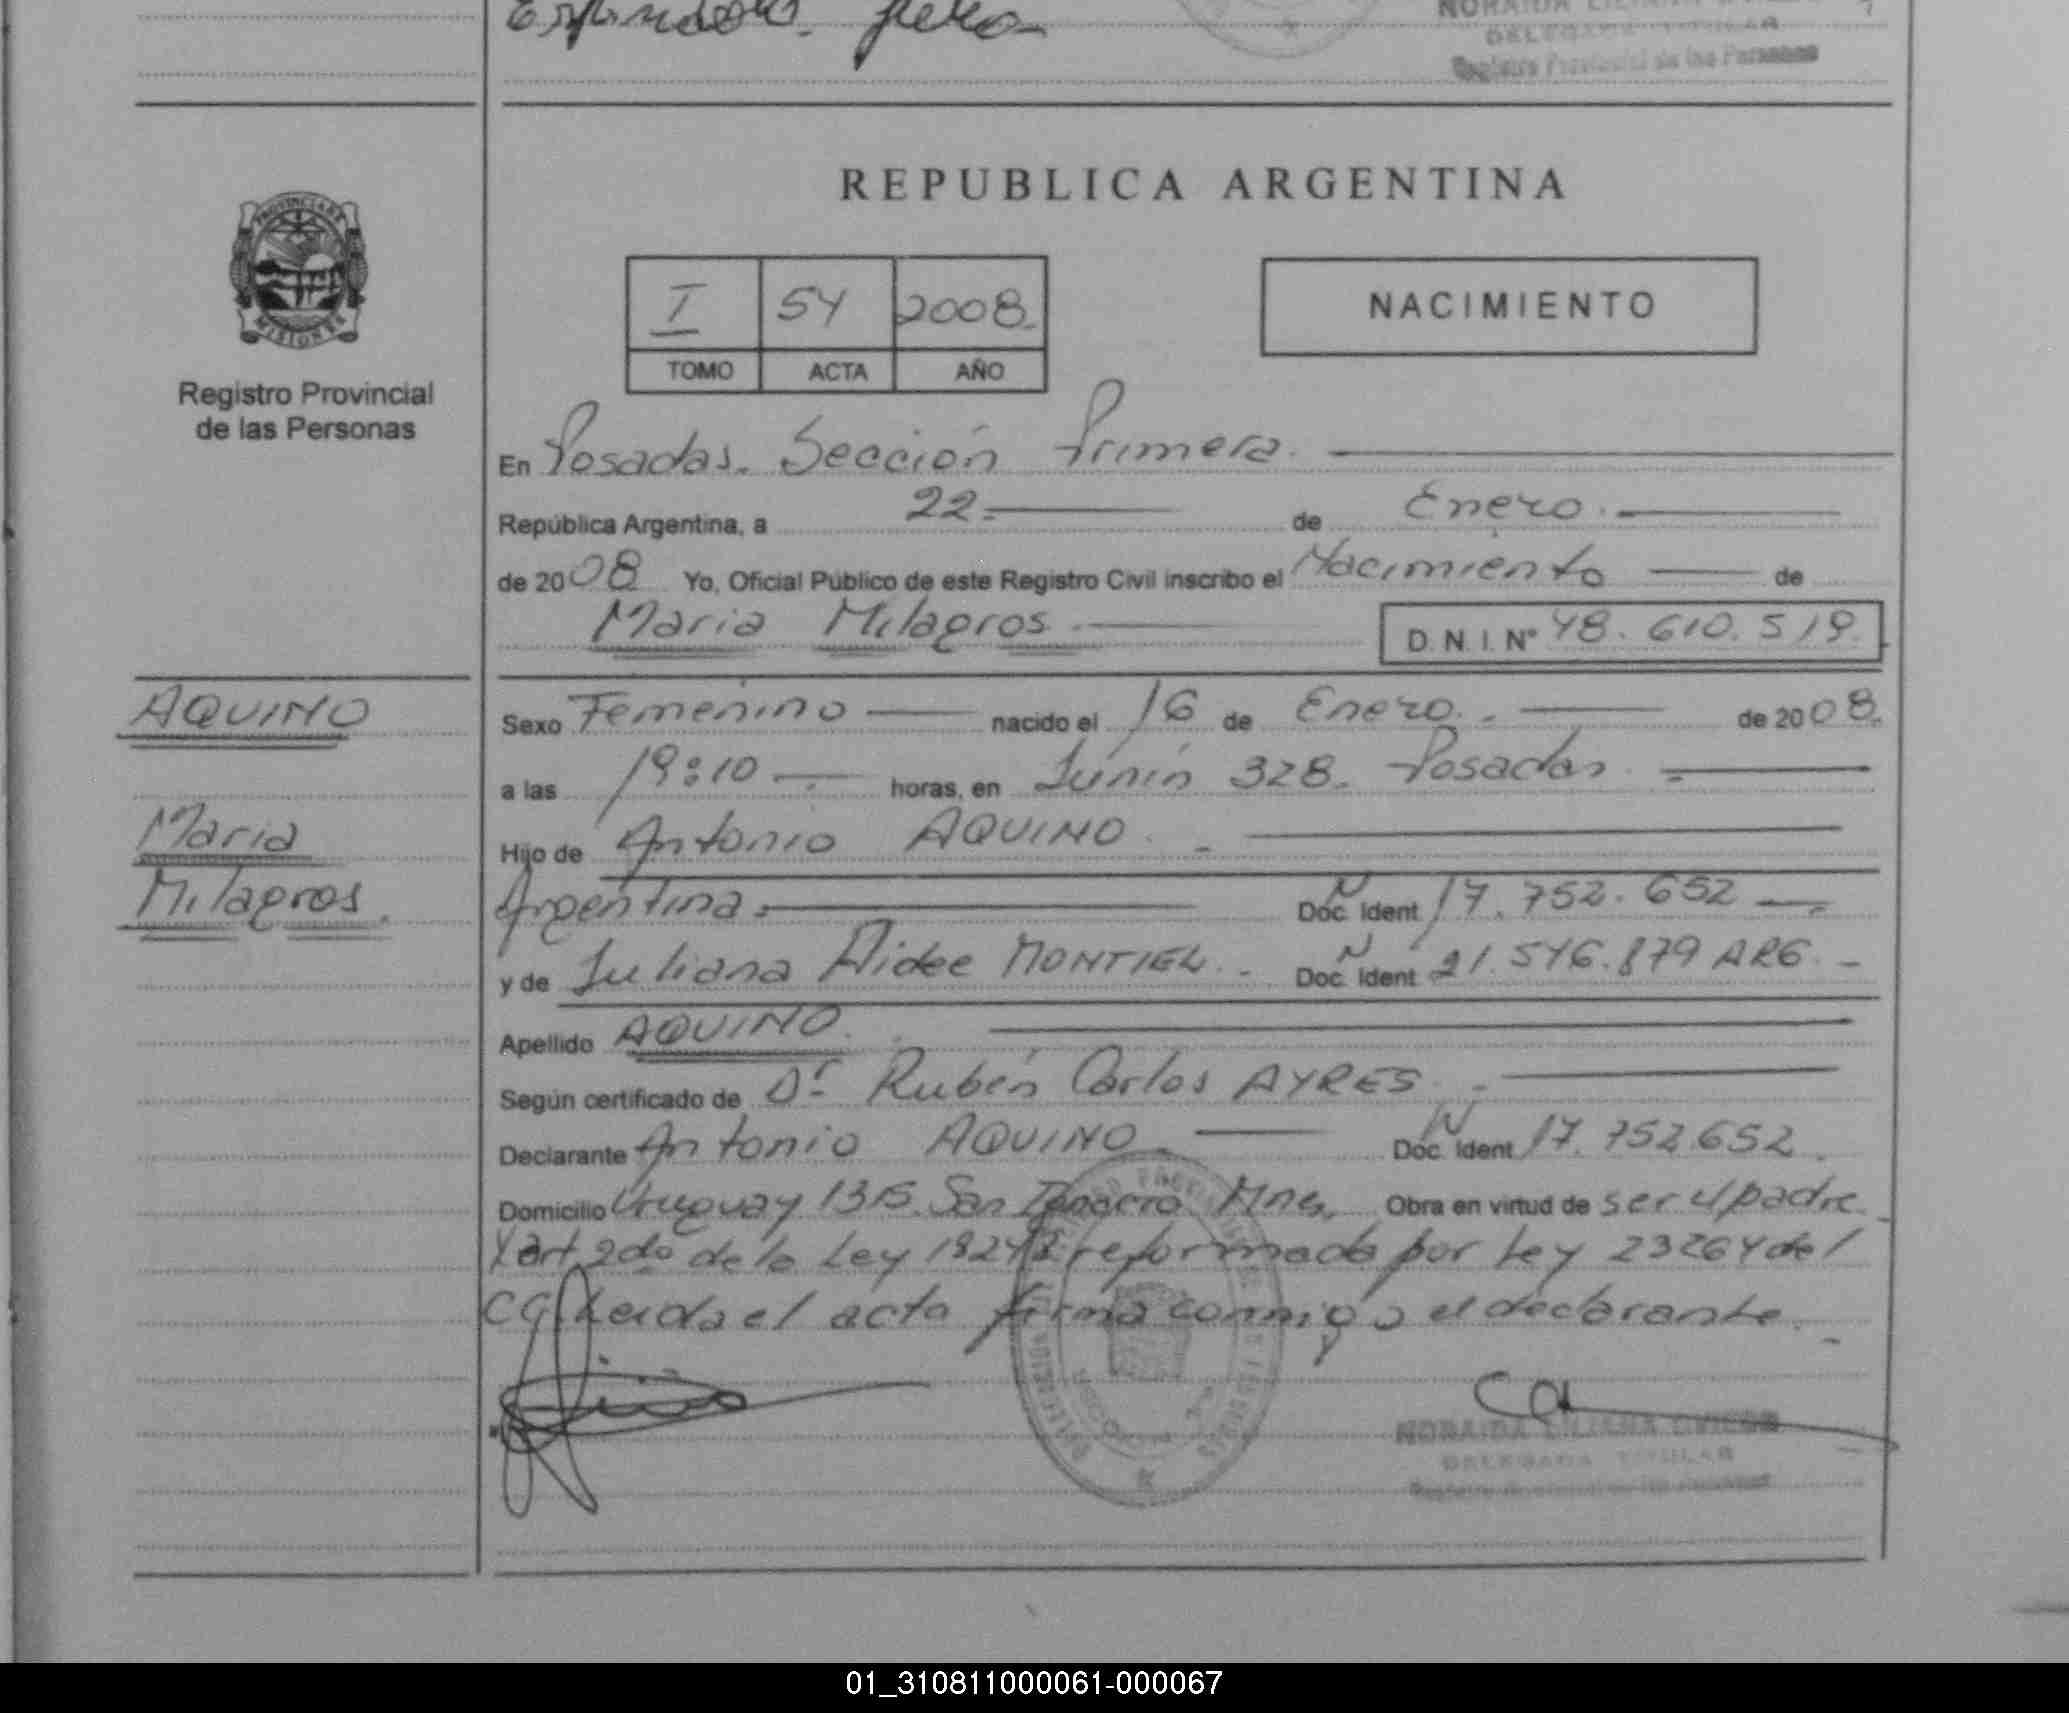 REPUBLICA ARGENTINA
PROVINCIA DE
MISIONES
Registro Provincial
de las Personas
I 54 2008.
TOMO ACTA AÑO
NACIMIENTO
En Posadas. Sección Primera.
República Argentina, a 22. de Enero.
de 2008 Yo, Oficial Público de este Registro Civil inscribo el Nacimiento de
Maria Milagros. D.N.I. Nº 48.610.519.
AQUINO
Maria
Milagros.
Sexo Femenino nacido el 16 de Enero. de 2008.
a las 19:10 horas, en Junín 328. Posadas.
Hijo de Antonio AQUINO.
Argentina. Doc. Ident N 17.752.652
y de Juliana Aidee MONTIEL. Doc. Ident N 21.546.879 ARG.
Apellido AQUINO.
Según certificado de Dr Rubén Carlos AYRES.
Declarante Antonio AQUINO. Doc. Ident N 17.752.652.
Domicilio Uruguay 1315. San Ignacio Mnes. Obra en virtud de ser el padre.
art 2do de la Ley 18248 reformada por Ley 23264 del
CC Leida el acta firma conmigo el declarante.
NORAIDA LILIANA OVIEDO
DELEGADA TITULAR
Registro Provincial de las Personas
01_310811000061-000067